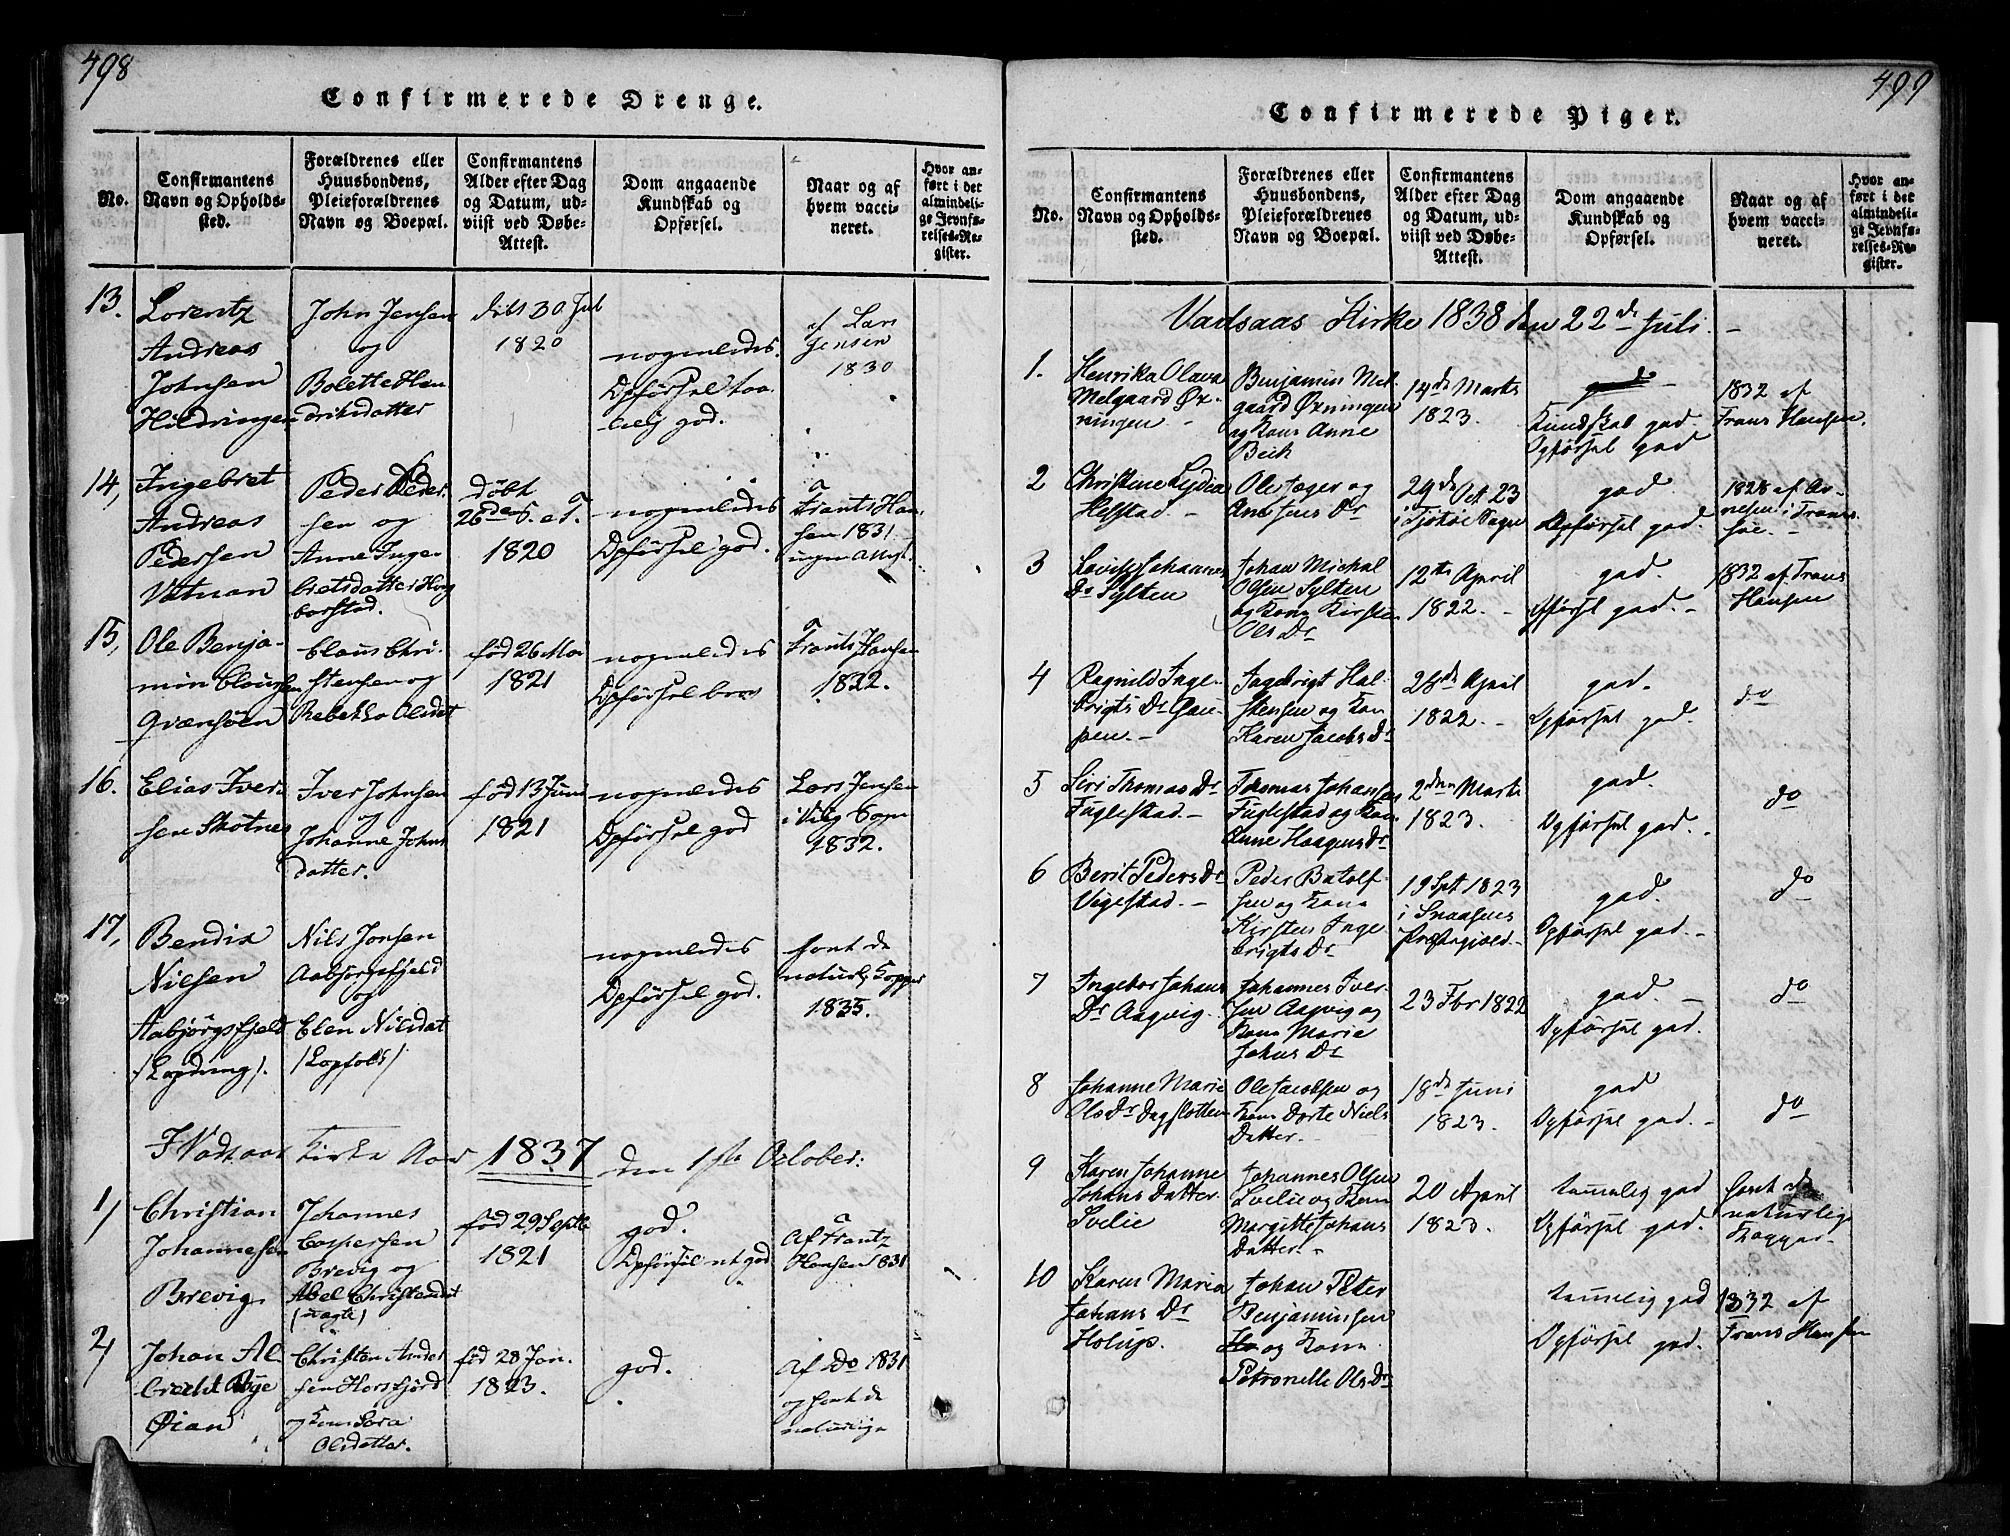 498
Confirmerede Drenge.
No.
Confirmantens
Navn og Opholds-
sted.
Forældrenes eller
Huusbondens,
Pleieforældrenes
Navn og Boepæl.
Confirmantens
Alder efter Dag
og Datum, ud-
viist ved Døbe-
Attest.
Dom angaaende
Kundskab og
Opførsel.
Naar og af
hvem vacci-
neret.
Hvor an-
ført i det
almindeli-
ge Jevnfø-
relses-Re-
gister.
13.
Lorentz
Andreas
Johnsen
Hildringen
John Jensen
og
Bolette Hen
driksdatter
1820
nogenledes.
Opförsel taa
lelig god.
af Lars
Jensen
1830
14,
Ingebret
Andreas
Pedersen
Vatnan
Peder Peder
sen og
Anne Inge
bretsdatter
døbt
26de S. e. T.
1820
nogenledes
Opförsel god.
Frants Han
sen 1831
15,
Ole Benja-
min Clausen
Qvænsöen
Claus Chri-
stensen og
Rebekka Olsdat
fød 26 Mai
1821
nogenledes
Opförsel bra
Frants Hansen
1832.
16.
Elias Iver
sen Skotnes
Iver Johnsen
og
Johanne Johns
datter.
fød 13 Juni
1821
nogenledes
Opförsel god
Lars Jensen
i Vig Sogn
1832.
17,
Bendix
Nielsen
Aabjörgsfjeld
Nils Jonsen
Aabjörgsfjeld
og
Elen Nilsdat
nogenledes
Opförsel god.
havt de
naturl. Kopper
1835.
I Vadsaas Kirke Aar 1837 den 1ste October:
1/
Christian
Johannesen
Brevig
Johannes
Caspersen
Brevig og
Abel
fød 29 Septb
1821
god.
Opförsel
god
Af Frantz
Hansen 1831
2/
Johan Al
brecht
Øian
Christen Ander
sen Horsfjord
og Kone Sara
Olsdatter.
fød 28 Jan.
1823.
god.
Af Do 1831
og havt de
naturlige
499
Confirmerede Piger.
No.
Confirmantens
Navn og Opholds-
sted.
Forældrenes eller
Huusbondens,
Pleieforældrenes
Navn og Boepæl.
Confirmantens
Alder efter Dag
og Datum, ud-
viist ved Døbe-
Attest.
Dom angaaende
Kundskab og
Opførsel.
Naar og af
hvem vacci-
neret.
Hvor an-
ført i det
almindeli-
ge Jevnfø-
relses-Re-
gister.
Vadsaas Kirke 1838 den 22de Juli. -
1.
Henrika Olava
Melgaard Øx-
ningen -
Benjamin Mel
gaard Øxningen
og Kone Anne
Bech
14de Marts
1823.
god
Kundskab god.
Opförsel god
1832 af
Frans Hansen.
2
Christine Lydia
Helstad. -
Ole Jæger og
Ane Jens Dr
29de Oct. 23
i Tjøtøe Sogn
god.
Opförsel god.
3
Johannes
Dr Sylten
Johan Michal
Olsen Sylten
og Kone Kirsten
Ols Dr
12te April
1822. -
god.
Opförsel god. -
1832 af Frans
Hansen
4
Ragnild Inge-
brigts Dr
pen. -
Ingebrigt Hal-
stensen og Kone
Karen Jacobs Dr
28de April
1822. -
god.
Opförsel god.
do
5
Siri Thomas Dr
Fuglestad. -
Thomas Johansen
Fuglestad og Kone
Anne Haagens Dr
2den Marts
1823.
god.
Opförsel god. -
do
6
Berit Peders Dr
Vegestad. -
Peder Batolf-
sen og Kone
Kirsten Inge
brigts Dr
19 Sept. 1823
i Snaasens
Præstegjæld. -
god.
Opförsel god. -
do
7
Ingebor Johans
Dr Aagvig.
Johannes Iver-
sen Aagvig og
Kone Marie
Johns Dr
23 Fbr 1822
god. -
Opförsel god.
do
8
Johanne Marie
Ols Dr Dagslotten
Ole Jacobsen og
Kone Dorte Niels
Datter. -
18de Juni
1823.
god
Opförsel god. -
do
9
Karen Johanne
Johans Datter
Svelie
Johannes Olsen
Svelie og Kone
Margitte Johans
Datter. -
20 April
1823.
temmelig god
Opförsel god.
havt de
naturlige
Kopper -
10
Karen Maria
Johans Dr
Holup.
Johan Peter
Benjaminsen
og Kone
Petronelle Ols Dr
temmelig god
Opförsel god.
1832 af
Frans Hansen